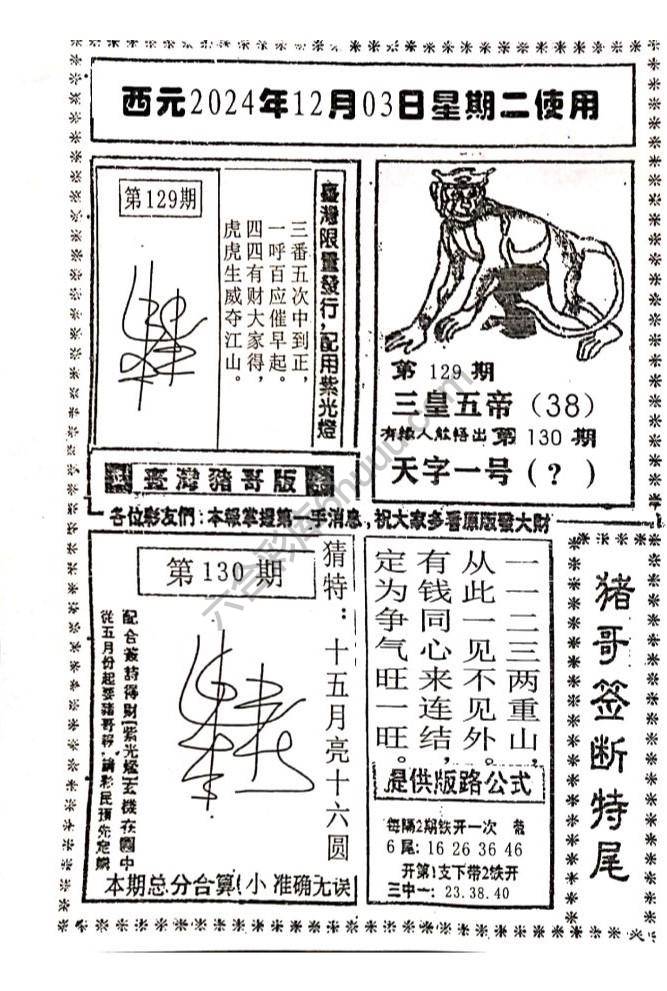 西元2024年12月03日星期二使用
第129期
臺灣限量發行,配用紫光燈
三番五次中到正,
一呼百应催早起。
四四有财大家得,
虎虎生威夺江山。
第129期
三皇五帝(38)
有緣人能悟出第130期
天字一号(?)
臺灣豬哥版
各位彩友們:本報掌握第一手消息,祝大家多看原版發大財
第130期
猜特:十五月亮十六圆
配合簽詩得財[紫光燈]玄機在圖中
從五月份起要豬哥報,請彩民預先定購
本期总分合算(小 准确无误
一一二三两重山,
从此一见不见外。
有钱同心来连结,
定为争气旺一旺。
提供版路公式
每隔2期铁开一次
6尾: 16 26 36 46
开第1支下带2铁开
三中一: 23.38.40
猪哥签断特尾
六合彩库